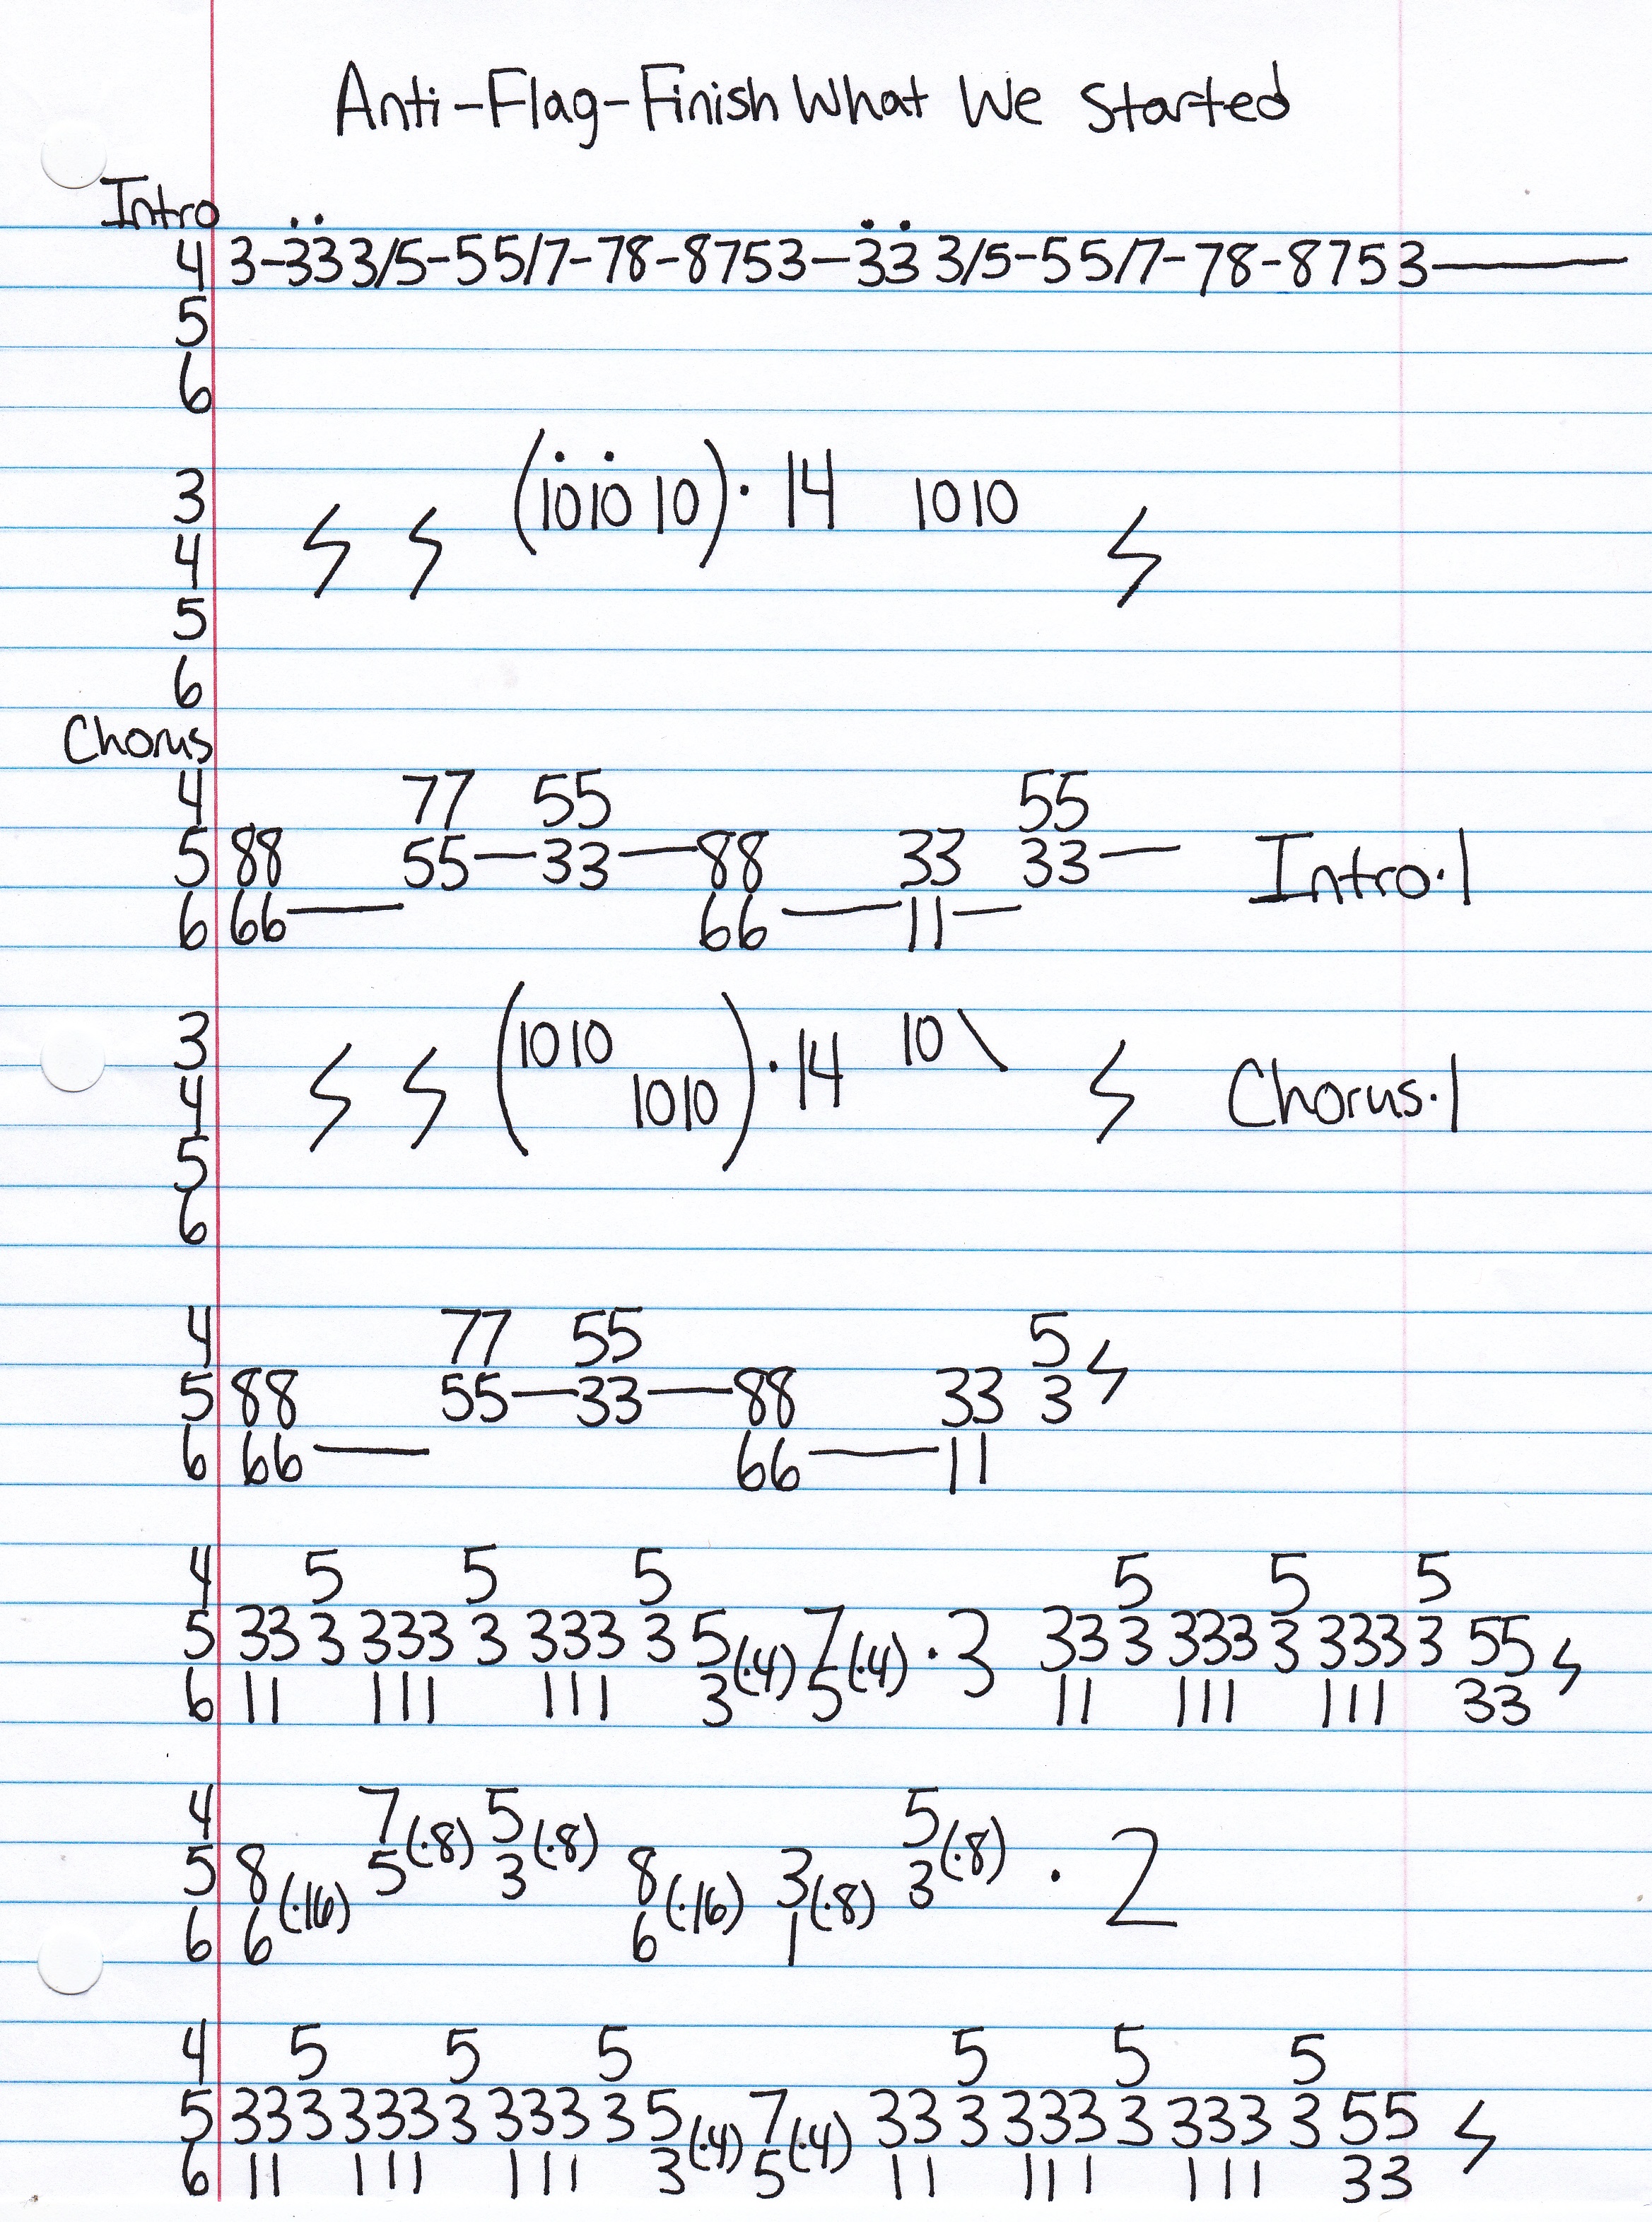 Anti-Flag-Finish What We Started
Intro
4 3-333/5-55/7-78-8753—33 3/5-55/7-78-8753—
5
6
3 (1010 10)·14 1010
4
5
6
Chorus
4 77 55 55
5 88 55—33—88 33 33— Intro·1
6 66— 66—11—
3 (1010 10\
4 1010)·14 Chorus·1
5
6
4 77 55 5
5 88 55—33—88 33 3
6 66— 66—11
4 5 5 5 5 5 5
5 33 3 333 3 333 3 5(·4) 7(·4) ·3 33 3 333 3 333 3 55
6 11 111 111 3 5 11 111 111 33
4 7(·8) 5(·8) 5(·8) ·2
5 8(·16) 5 3 8(·16) 3(·8) 3
6 6 6 1
4 5 5 5 5 5 5
5 33 3 333 3 333 3 5(·4) 7(·4) 33 3 333 3 333 3 55
6 11 111 111 3 5 11 111 111 33